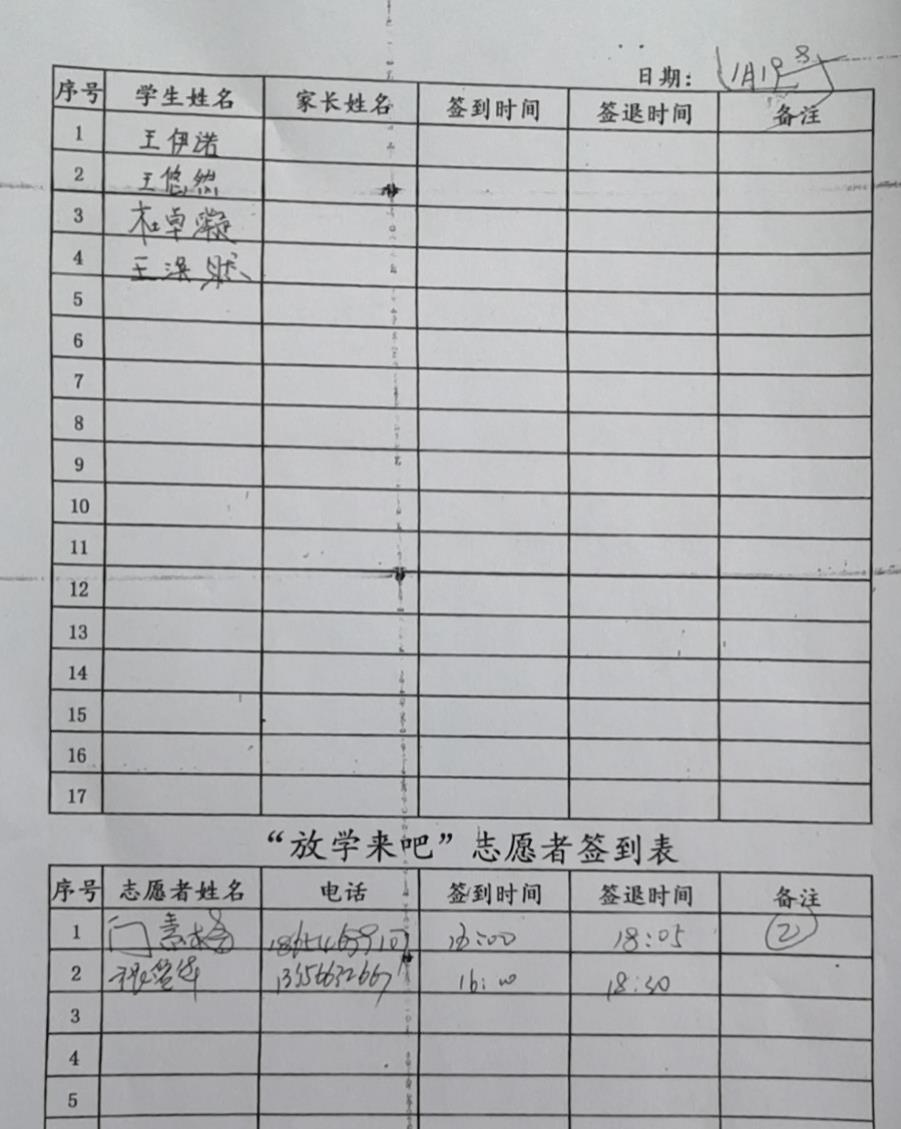 日期：1月19日
序号 学生姓名 家长姓名 签到时间 签退时间 备注
1 王伊诺
2 王悠然
3 卓凝
4 王
5
6
7
8
9
10
11
12
13
14
15
16
17
“放学来吧”志愿者签到表
序号 志愿者姓名 电话 签到时间 签退时间 备注
1 门 16:00 18:05 ②
2 13356632667 16:00 18:30
3
4
5